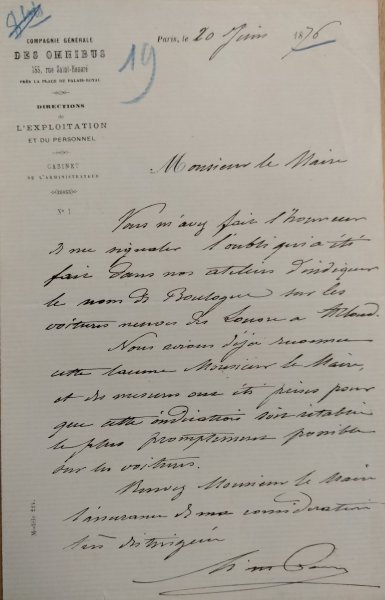 COMPAGNIE GÉNÉRALE
DES OMNIBUS
155, rue Saint-Honoré
PRÈS LA PLACE DU PALAIS-ROYAL
DIRECTIONS
de
L'EXPLOITATION
ET DU PERSONNEL
CABINET
DE L'ADMINISTRATEUR
N° 1
Paris, le 20 Juin 1876
19
Monsieur le Maire
Vous m'avez fait l'honneur
de me signaler l'oubli qui a été
fait dans nos ateliers d'indiquer
le nom de Boulogne sur les
voitures neuves du Louvre à St Cloud.
Nous avions déjà reconnu
cette lacune Monsieur le Maire,
et des mesures ont été prises pour
que cette indication soit rétablie
le plus promptement possible
sur les voitures.
Recevez Monsieur le Maire
l'assurance de ma considération
très distinguée
Modèle 22